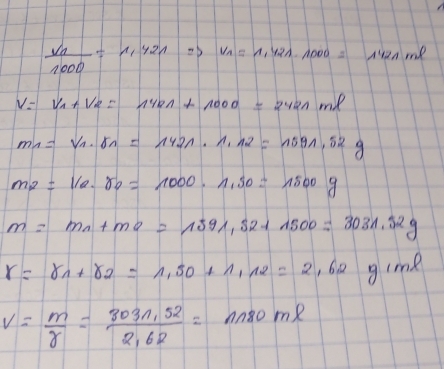 V1/1000 = 1,421 => V1 = 1,421 . 1000 = 1421 ml
V = V1 + V2 = 1421 + 1000 = 2421 ml
m1 = V1 . γ1 = 1421 . 1,12 = 1591,52 g
m2 = V2 . γ2 = 1000 . 1,50 = 1500 g
m = m1 + m2 = 1591,52 + 1500 = 3031,52 g
γ = γ1 + γ2 = 1,50 + 1,12 = 2,62 g/ml
V = m/γ = 3031,52/2,62 = 1180 ml